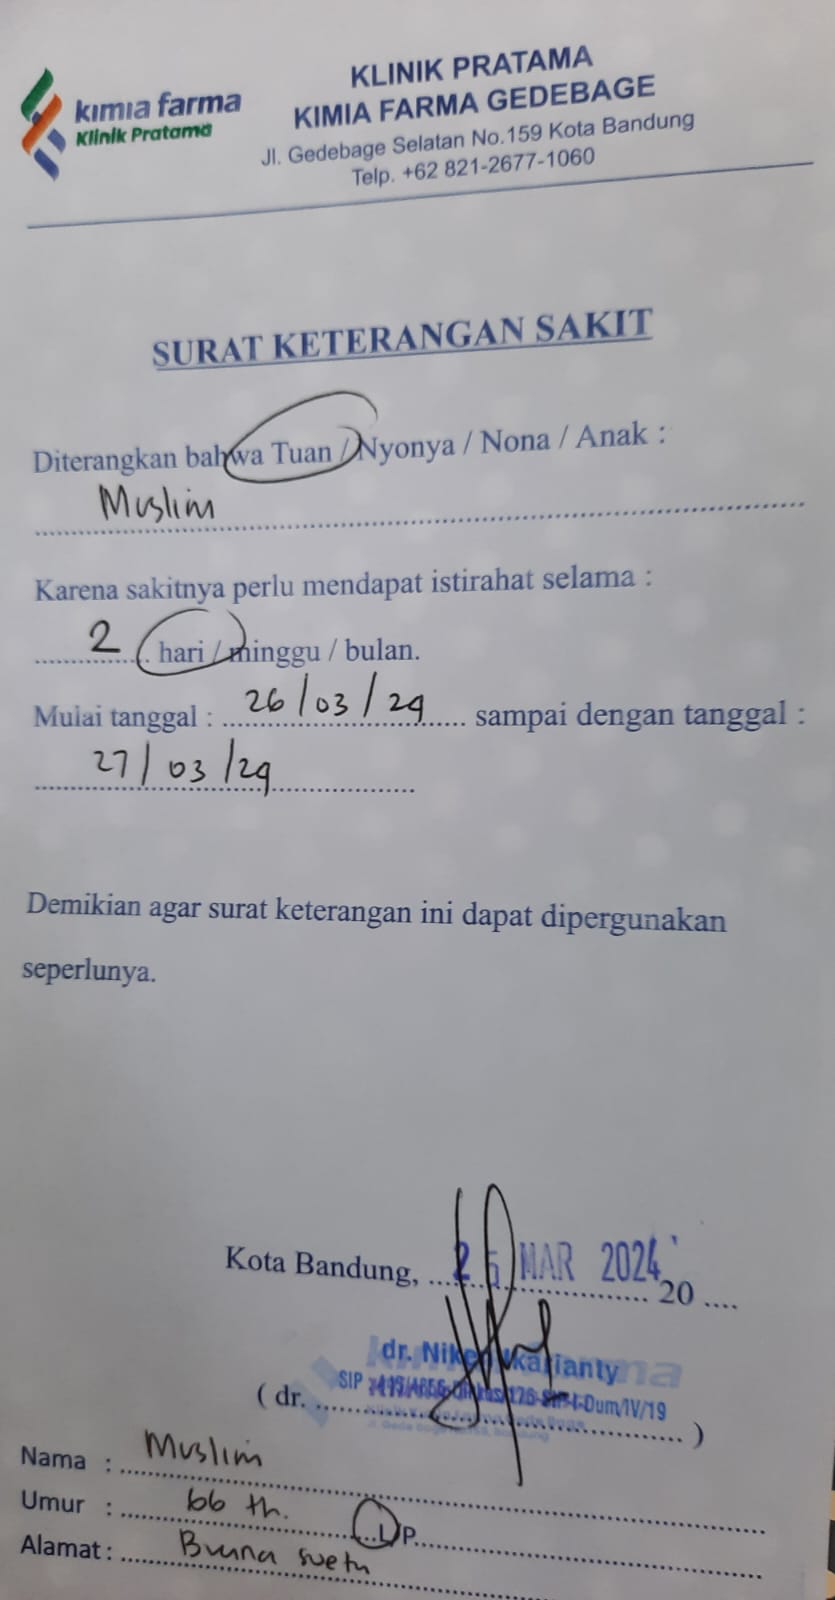 kimia farma
Klinik Pratama
KLINIK PRATAMA
KIMIA FARMA GEDEBAGE
Jl. Gedebage Selatan No.159 Kota Bandung
Telp. +62 821-2677-1060
SURAT KETERANGAN SAKIT
Diterangkan bahwa Tuan / Nyonya / Nona / Anak :
Muslim
Karena sakitnya perlu mendapat istirahat selama :
2 hari / minggu / bulan.
Mulai tanggal : 26/03/24 sampai dengan tanggal :
27/03/24
Demikian agar surat keterangan ini dapat dipergunakan
seperlunya.
Kota Bandung, 26 MAR 2024 20 ....
dr. Niken
SIP
( dr. )
Nama : Muslim
Umur : 66 th. L/P
Alamat : Buana